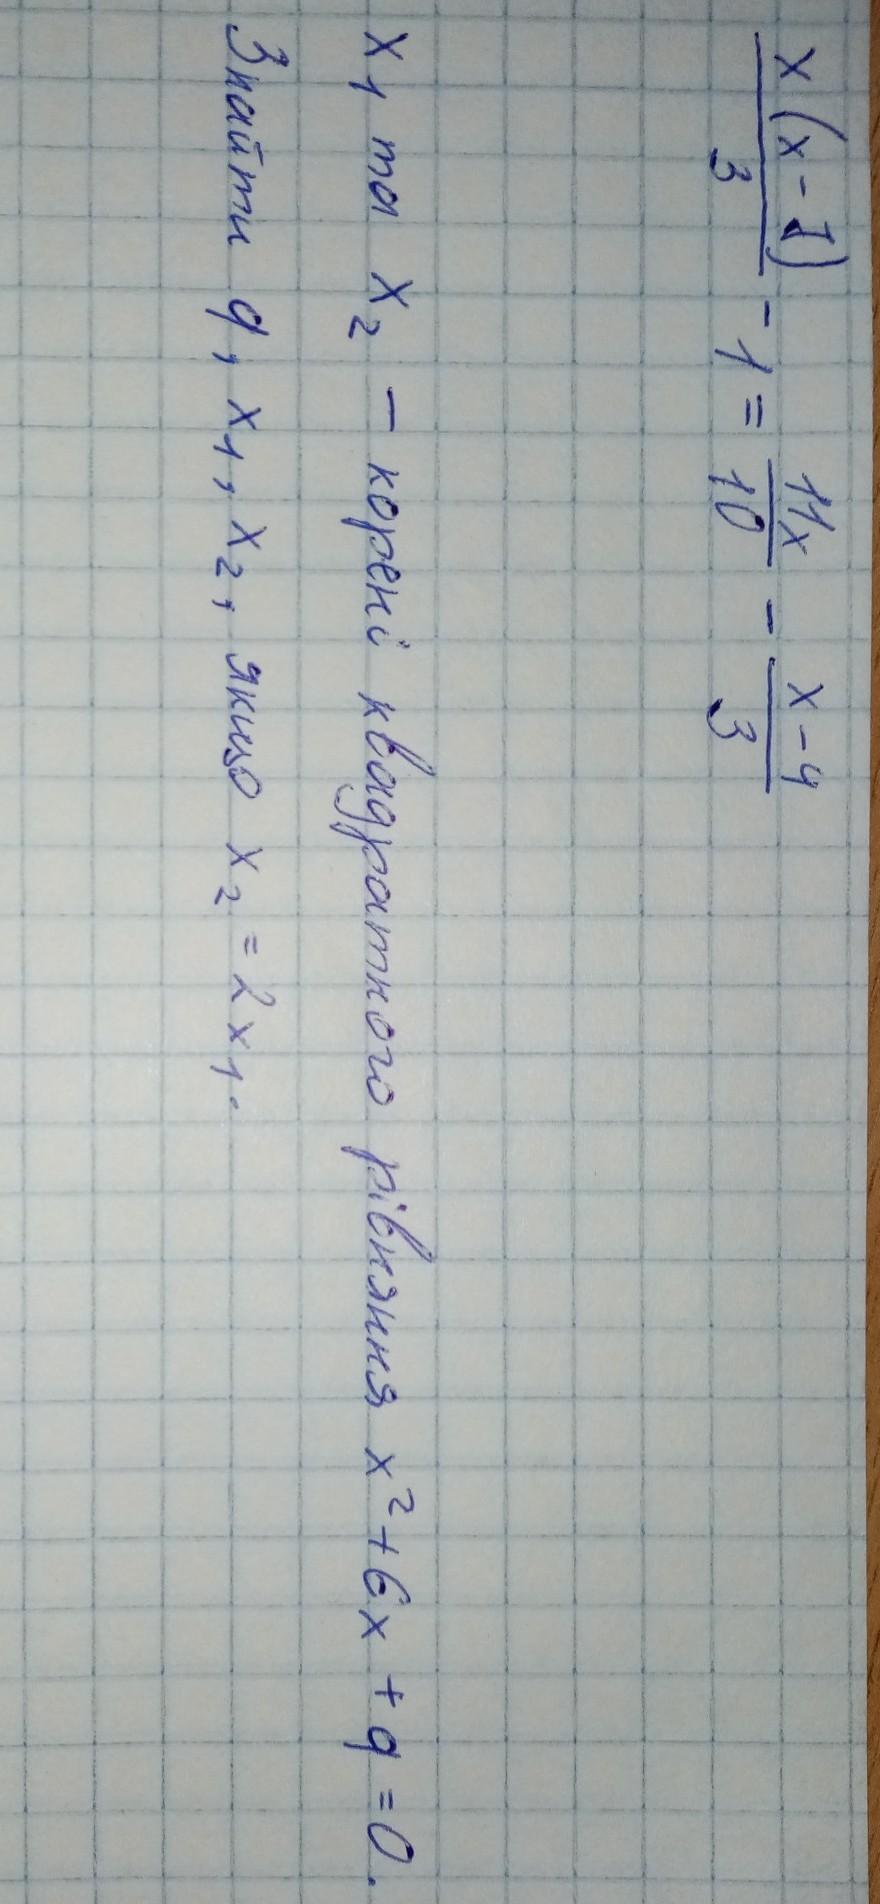 x(x-7)/3 - 1 = 11x/10 - x-4/3
x₁ та x₂ - корені квадратного рівняння x²+6x+q=0.
Знайти q, x₁, x₂, якщо x₂=2x₁.